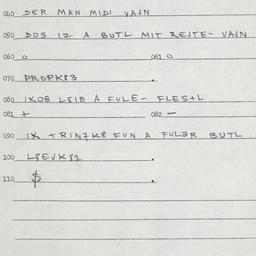 060 DER MAN MIDI VAJN
050 DOS IZ A BUTL MIT REJTE- VAJN
060 0 061 0
070 PROPK83 .
080 IX OB L8IB A FULE- FLESHL
081 + 082 —
090 IX TRINZK8 FUN A FUL3R BUTL
100 L8EVK82 .
110 $ .